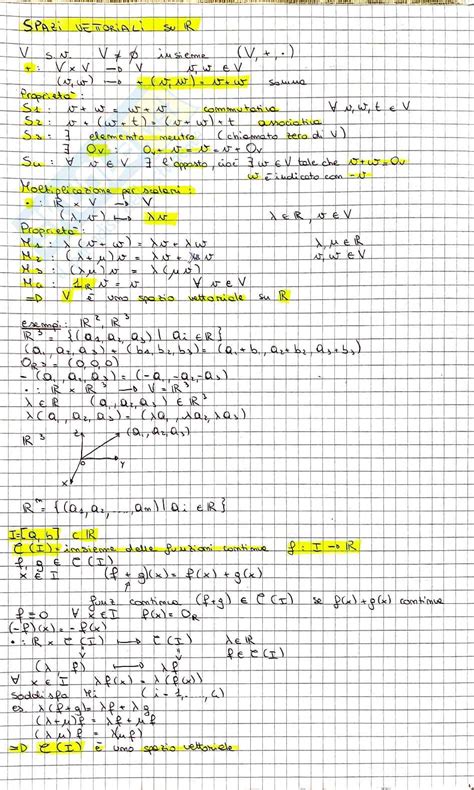 SPAZI VETTORIALI SU ℝ
V s.v V ≠ ∅ insieme (V, +, ·)
+ : V × V → V v, w ∈ V
(v, w) → +(v, w) = v+w somma
Proprietà:
S1: v + w = w + v commutativa ∀ v, w, t ∈ V
S2: v + (w + t) = (v + w) + t associativa
S3: ∃ elemento neutro (chiamato zero di V)
∃ 0v : 0v + v = v = v + 0v
S4: ∀ v ∈ V ∃ l'opposto, cioè ∃ w ∈ V tale che v+w = 0v
w è indicato con -v
Moltiplicazione per scalari:
· : ℝ × V → V
(λ, v) ↦ λv λ ∈ ℝ, v ∈ V
Proprietà:
M1: λ(v + w) = λv + λw λ, μ ∈ ℝ
M2: (λ + μ)v = λv + μv v, w ∈ V
M3: (λμ)v = λ(μv)
M4: 1ℝ v = v ∀ v ∈ V
⇒ V è uno spazio vettoriale su ℝ
esempi: ℝ², ℝ³
ℝ³ = {(a1, a2, a3) | ai ∈ ℝ}
(a1, a2, a3) + (b1, b2, b3) = (a1 + b1, a2 + b2, a3 + b3)
0ℝ³ = (0,0,0)
-(a1, a2, a3) = (-a1, -a2, -a3)
· : ℝ × ℝ³ → V = ℝ³
λ ∈ ℝ (a1, a2, a3) ∈ ℝ³
λ(a1, a2, a3) = (λa1, λa2, λa3)
ℝ³ z (a1, a2, a3)
0 y
x
ℝⁿ = {(a1, a2, ..., an) | ai ∈ ℝ}
I = [a, b] ⊂ ℝ
C(I) = insieme delle funzioni continue f : I → ℝ
f, g ∈ C(I)
x ∈ I (f + g)(x) = f(x) + g(x)
funz continua (f+g) ∈ C(I) se f(x) + g(x) continua
f = 0 ∀ x ∈ I f(x) = 0ℝ
(-f)(x) = -f(x)
· : ℝ × C(I) ↦ C(I) λ ∈ ℝ
f ∈ C(I)
(λ, f) ↦ λf
∀ x ∈ I λf(x) = λ(f(x))
soddisfa Mi (i = 1, ..., 4)
es λ(f+g) = λf + λg
(λ+μ)f = λf + μf
(λμ)f = λ(μf)
⇒ C(I) è uno spazio vettoriale